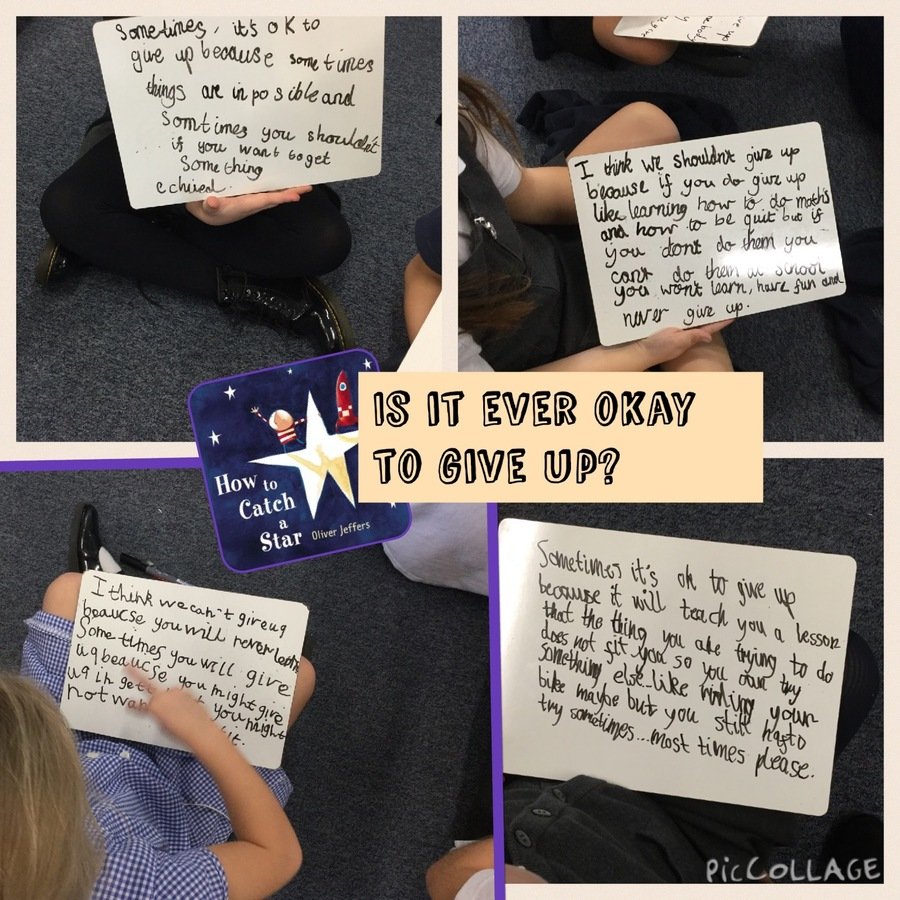 Sometimes, it's ok to
give up because sometimes
things are inposible and
Somtimes you shouldn't
if you want to get
Something
echived.
I think we shouldn't give up
because if you do give up
like learning how to do maths
and how to be quit but if
you don't do them you
can't do them at school
you won't learn, have fun and
never give up.
How to
Catch
a
Star
Oliver Jeffers
IS IT EVER OKAY
TO GIVE UP?
I think we can't giveup
beaucse you will never
Sometimes you will give
up beaucse you might give
up in you might
not
Sometimes it's ok to give up
because it will teach you a lesson
that the thing you are trying to do
does not fit you so you can try
something else...like riding your
bike maybe but you still hasto
try sometimes...most times please.
PICCOLLAGE